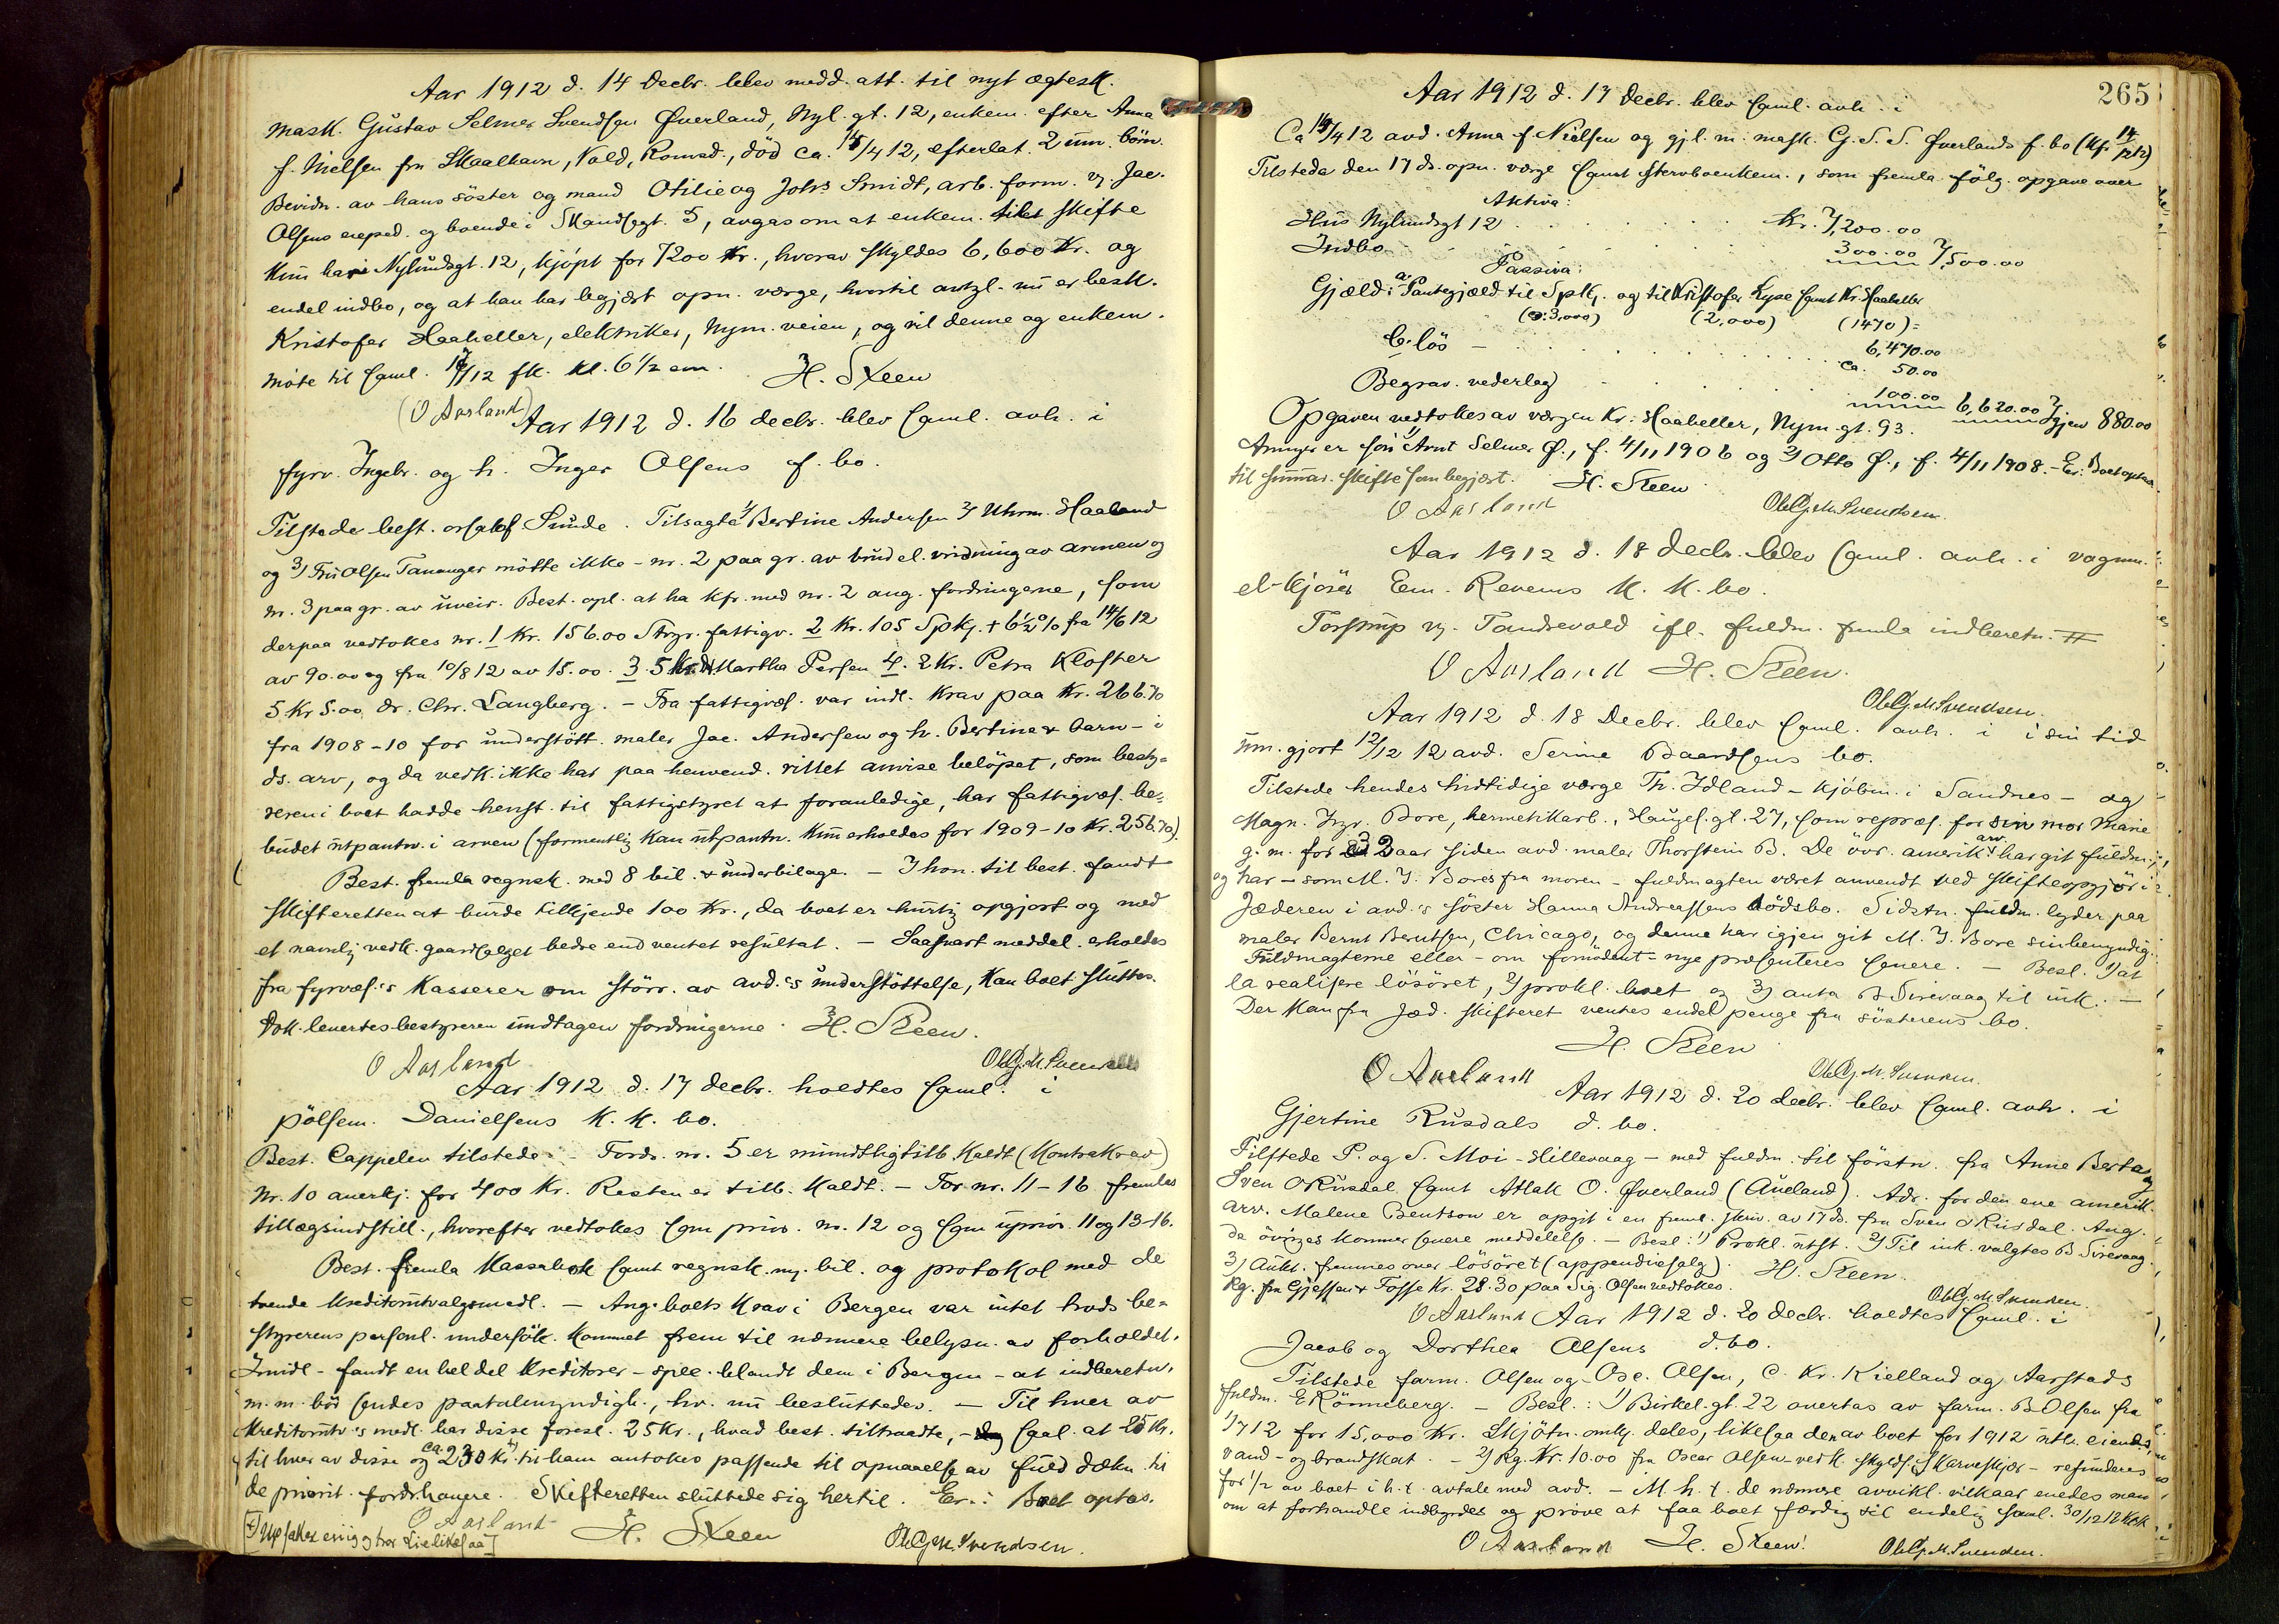 Aar 1912 d. 14 Decbr. blev medd. att. til nyt ægtesk.
Mask. Gustav Selmer Svendsen Øverland, Nyl. gt. 12, enkem. efter Anna
f. Nielsen fra Skaalhavn, Vold, Romsd., død ca. 15/4 12, efterlat. 2 um. börn.
Bevidn. av hans söster og mand Otilie og Johs Smidt, arb. form. v. Jac.
Olsens eksped. og boende i Skandsegt. 5, avgas om at enkem. tilst skifte
kun har Nylundsgt. 12, kjöpt for 7200 Kr., hvorav skyldes 6,600 Kr. og
endel indbo, og at han har begjært opn. værge, hvortil antgl. nu er besk.
Kristofer Haaheller, elektriker, Nym. veien, og vil denne og enkem.
möte til saml. 17/12 fk. kl. 6 1/2 em. H. Steen
(O Aarland) Aar 1912 d. 16 decbr. blev saml. avh. i
fyrv. Ingebr. og h. Inger Olsens f. bo.
Tilstede best. orsakf. Sunde. Tilsagte 1) Bertine Andersen 2) Uhrm. Haaland
og 3) Fru Olsen Tananger mötte ikke - nr. 2 paa gr. av brud el. vridning av armen og
nr. 3 paa gr. av uveir. Best. opl. at ha kfr. med nr. 2 ang. fordringerne, som
derpaa vedtokes nr. 1 Kr. 156.00 Stvgr. fattigv. 2 Kr. 105 Spkj. + 6 1/2 % fra 14/6 12
av 90.00 og fra 10/8 12 av 15.00. 3. 5 Kr. Martha Persen 4. 2 Kr. Petra Kloster
5 Kr 5.00 dr. Chr. Langberg. - Fra fattigvæs. var indl. krav paa Kr. 266.70
fra 1908-10 for understött. maler Jac. Andersen og h. Bertine & barn - i
ds. arv, og da vedk. ikke har paa henvend. villet anvise belöpet, som besty=
reren i boet hadde henst. til fattigstyret at foranledige, har fattigvæs. be=
budet utpantn. i arven (formentlig kan utpantn. kun erholdes for 1909-10 Kr. 256.70).
Best. fremla regnsk. med 8 bil. & underbilage. - I hon. til best. fandt
skifteretten at burde tilkjende 100 Kr., da boet er hurtig opgjort og med
et navnlig vedk. gaardsalget bedre end ventet resultat. - Saasnart meddel. erholdes
fra fyrvæs.'s Kasserer om störr. av avd.'s understöttelse, kan boet sluttes.
Dok. levertes bestyreren undtagen fordringerne. H. Steen.
O Aarland OleGj.M.Svendsen
Aar 1912 d. 17 decbr. holdtes saml. i
pölsem. Danielsens K. K. bo.
Best. Cappelen tilstede. - Fordr. nr. 5 er mundtlig tilb. kaldt (Kontrakrav)
Nr. 10 anerkj. for 400 Kr. Resten er tilb. kaldt. - For nr. 11-16 fremlas
tillægsindstill., hvorefter vedtokes som prior. nr. 12 og som uprior. 11 og 13-16.
Best. fremla Kassabok samt regnsk. m. bil. og protokol med de
toende kreditorutvalgsmedl. - Ang. boets krav i Bergen var intet trods be=
styrerens personl. undersök. kommet frem til nærmere belysn. av forholdet.
Imidl. - fandt en hel del kreditorer - spec. blandt dem i Bergen - at indberetn.
m.m. bör sendes paatalemyndigh., hv. nu besluttedes. - Til hver av
kreditorutv.'s medl. har disse foresl. 25 Kr., hvad best. tiltraadte, - saal. at 25 Kr.
til hver av disse og ca. 230 Kr. +) til ham antokes passende til opnaaelse av fuld dækn. til
de priorit. fordr.havere. Skifteretten sluttede sig hertil. Er.: Boet optas.
O Aarland H. Steen OleGj.M.Svendsen.
265
Aar 1912 d. 17 decbr. blev saml. avh. i
Ca 15/4 12 avd. Anna f. Nielsen og gjl. m. mask. G. S. S. Øverlands f. bo (kfr. 14/12 12)
Tilstede den 17 ds. opn. værge samt stervboenkem., som fremla fölg. opgave over
Aktiva:
Hus Nylundsgt 12 . . . . . Kr. 7,200.00
Indbo . . . . . 300.00 7,500.00
Passiva:
Gjæld: a. Pantegjæld til Spkj. og til Kristofer Kyse samt Kr. Haaheller
(o: 3,000) (2,000) (1470) =
6,470.00
b. lös - . . . . . ca. 50.00
Begrav. vederlag . . . . . 100.00 6,620.00 Igjen 880.00
Opgaven vedtokes av værgen Kr. Haaheller, Nym.gt. 93.
Arvinger er sön 1) Arnt Selmer Ø., f. 4/11 1906 og 2) Otto Ø., f. 4/11 1908. - Er.: Boet optas
til summar. skifte som begjært. H. Steen
O Aarland OleGj.M.Svendsen.
Aar 1912 d. 18 Decbr. blev saml. avh. i vognm.
el- kjörer Em. Revems K. K. bo.
Torstrup v. Tandrevold ifl. fuldm. fremla indberetn. #
O Aarland H. Steen.
OleGj.M.Svendsen.
Aar 1912 d. 18 Decbr. blev saml. avh. i i sin tid
um.gjort 12/12 12 avd. Serine Baardsens bo.
Tilstede hendes hidtidige værge Th. Idland - kjöbm. i Sandnes - og
Magn. Ingv. Bore, hermetikkarb., Haugs.gt. 27, som repræs. for sin mor Marie
g. m. for 2 aar siden avd. maler Thorstein B. De övr. amerik. arv. har git fuldm.,
og har - som M. I. Bores fra moren - fuldmagten været anvendt ved skifteopgjör i
Jæderen i avd.'s söster Hanna Andreassens dödsbo. Sidstn. fuldm. lyder paa
maler Bernt Berntsen, Chicago, og denne har igjen git M. I. Bore sin bemyndig.
Fuldmagterne eller - om fornödent - nye præsenteres senere. - Besl. 1) at
la realisere lösöret, 2) prokl. boet og 3) anta B Sirevaag til ink. -
Der kan fra Jæd. skifteret ventes endel penge fra sösterens bo.
H. Steen
O Aarland OleGj.M.Svendsen.
Aar 1912 d. 20 decbr. blev saml. avh. i
Gjertine Rusdals d. bo.
Tilstede P. og S. Moi - Hillevaag - med fuldm. til förstn. fra Anne Berta og
Sven O Rusdal samt Atlak O. Øverland (Aueland). Adr. for den ene amerik.
arv. Malene Bentson er opgit i en freml. skriv. av 17 ds. fra Sven O Rusdal. Ang.
de övriges kommer senere meddelelse. - Besl.: 1) Prokl. utst. 2) Til ink. valgtes B Sirevaag.
3) Aukt. fremmes over lösöret (appendixsalg). H. Steen.
Rg. fra Gjessen & Fosse Kr. 28.30 paa Sig. Olsen vedtokes. OleGj.M.Svendsen.
O Aarland Aar 1912 d. 20 Decbr. holdtes saml. i
Jacob og Dorthea Olsens d. bo.
Tilstede farm. Olsen og Osc. Olsen, C. Kr. Kielland og Aarstads
fuldm. E Rönneberg. - Besl.: 1) Birkel.gt. 22 overtas av farm. B Olsen fra
1/7 12 for 15,000 Kr. Skjötn. omk. deles, likesaa den av boet for 1912 utb. eiendoms,
vand- og brandskat. - 2) Rg. Kr. 10.00 fra Oscar Olsen vedk. skyds. Skarveskjær - refunderes
for 1/2 av boet i h.t. avtale med avd. - M. h. t. de nærmere avvikl. vilkaar enedes man
om at forhandle indbyrdes og pröve at faa boet færdig til endelig saml. 30/12 12 kl. 6
O Aarland H. Steen OleGj.M.Svendsen.